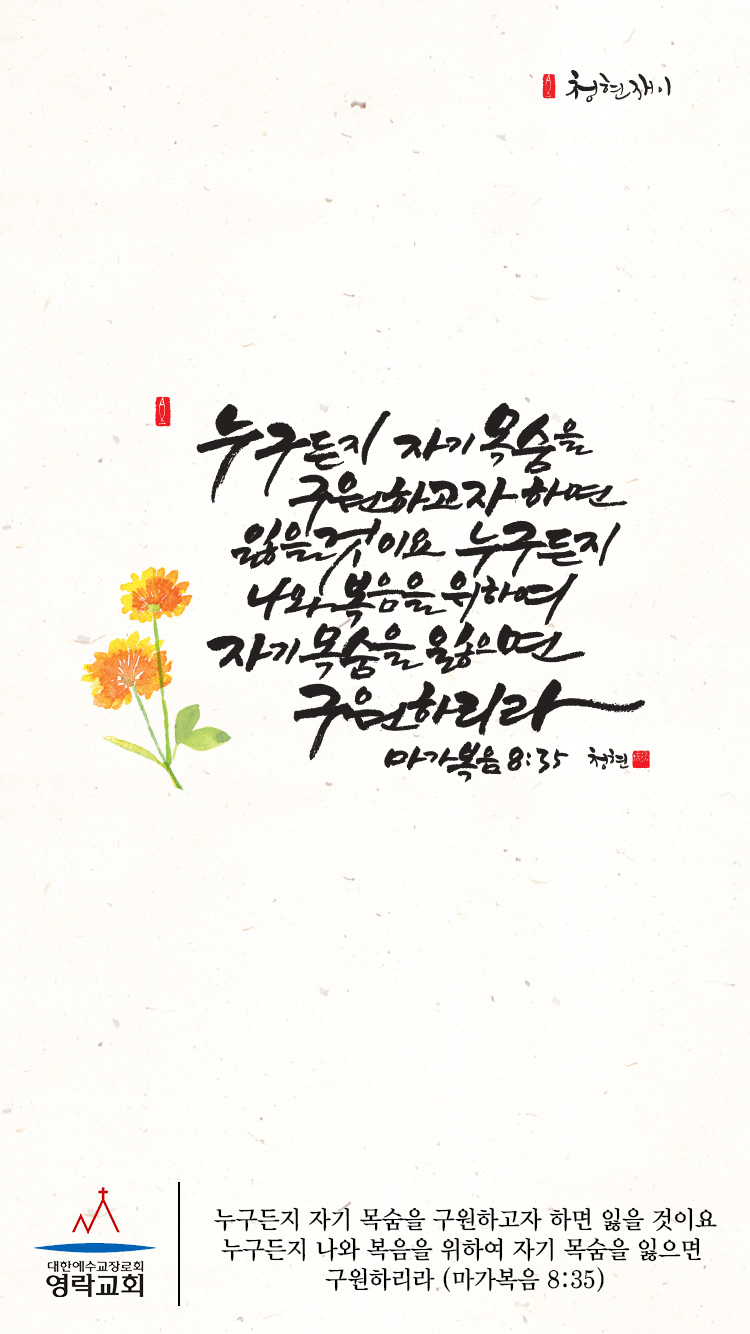 청현재이
누구든지 자기 목숨을
구원하고자 하면
잃을 것이요 누구든지
나와 복음을 위하여
자기 목숨을 잃으면
구원하리라
마가복음 8:35 청현
대한예수교장로회
영락교회
누구든지 자기 목숨을 구원하고자 하면 잃을 것이요
누구든지 나와 복음을 위하여 자기 목숨을 잃으면
구원하리라 (마가복음 8:35)